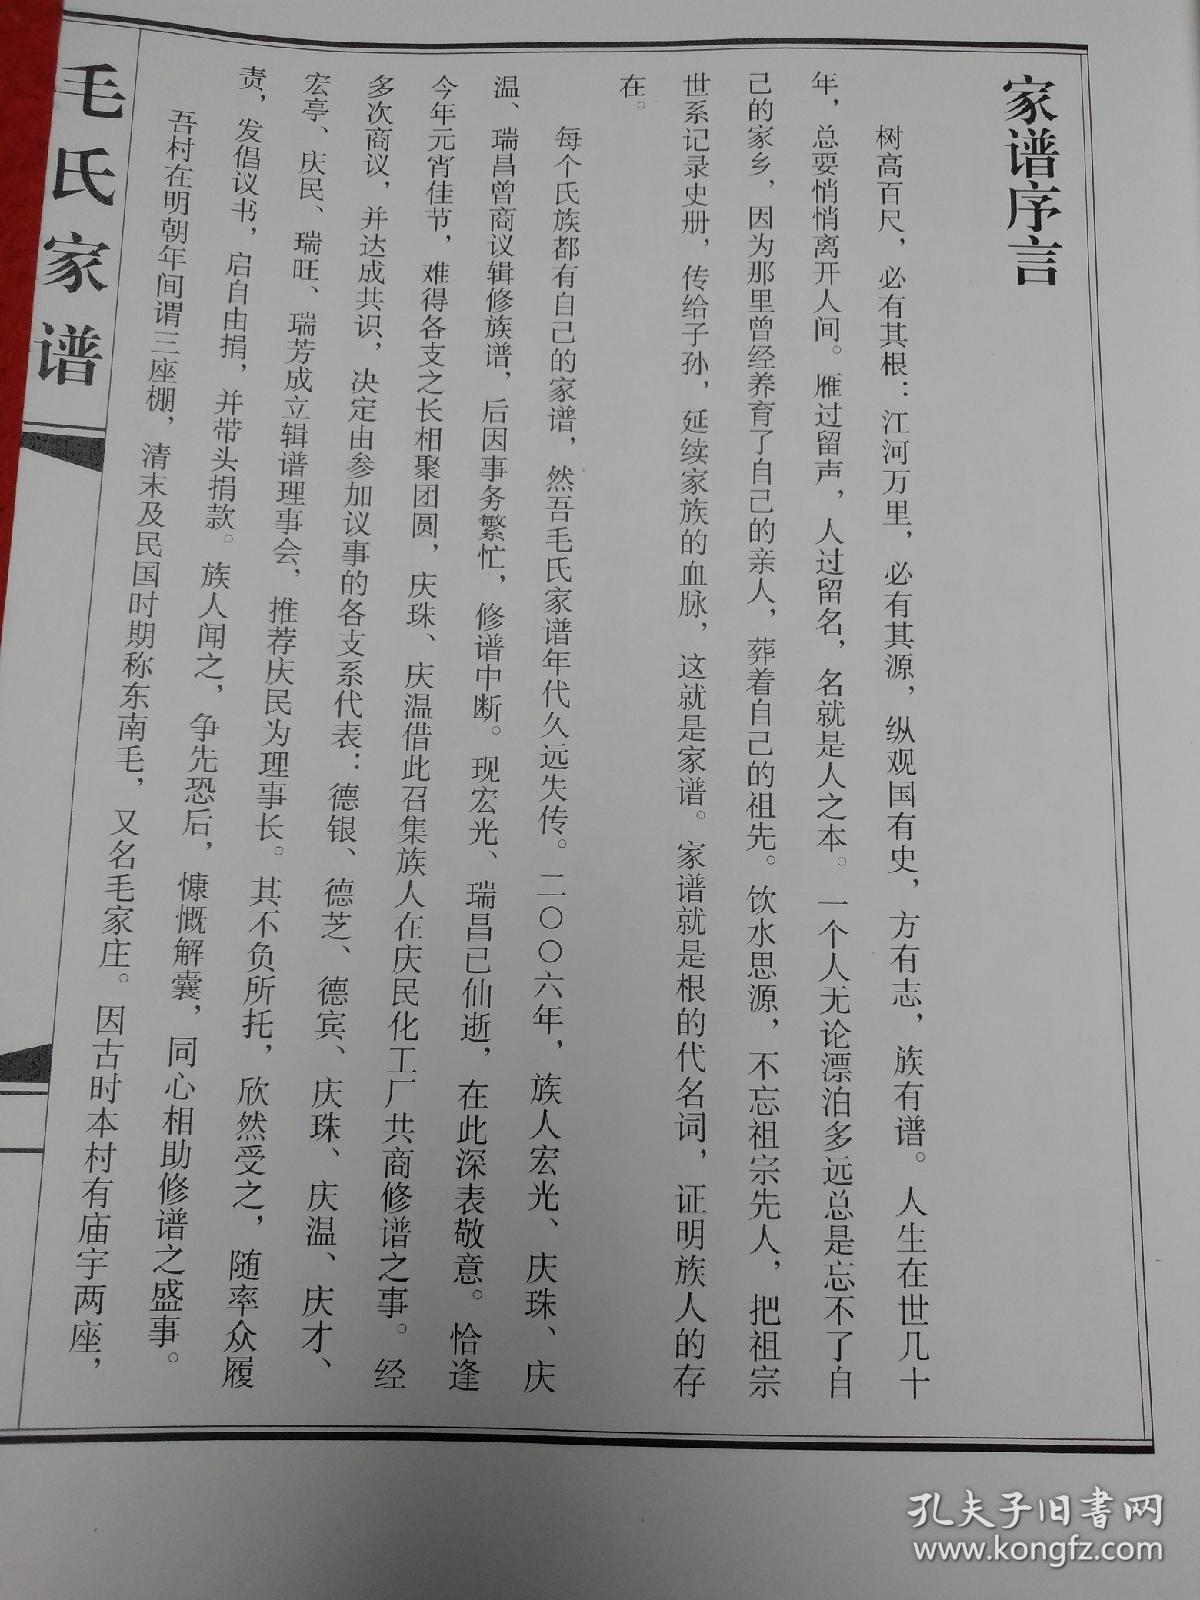 家谱序言
树高百尺，必有其根：江河万里，必有其源，纵观国有史，方有志，族有谱。人生在世几十
年，总要悄悄离开人间。雁过留声，人过留名，名就是人之本。一个人无论漂泊多远总是忘不了自
己的家乡，因为那里曾经养育了自己的亲人，葬着自己的祖先。饮水思源，不忘祖宗先人，把祖宗
世系记录史册，传给子孙，延续家族的血脉，这就是家谱。家谱就是根的代名词，证明族人的存
在。
每个氏族都有自己的家谱，然吾毛氏家谱年代久远失传。二〇〇六年，族人宏光、庆珠、庆
温、瑞昌曾商议辑修族谱，后因事务繁忙，修谱中断。现宏光、瑞昌已仙逝，在此深表敬意。恰逢
今年元宵佳节，难得各支之长相聚团圆，庆珠、庆温借此召集族人在庆民化工厂共商修谱之事。经
多次商议，并达成共识，决定由参加议事的各支系代表：德银、德芝、德宾、庆珠、庆温、庆才、
宏亭、庆民、瑞旺、瑞芳成立辑谱理事会，推荐庆民为理事长。其不负所托，欣然受之，随率众履
责，发倡议书，启自由捐，并带头捐款。族人闻之，争先恐后，慷慨解囊，同心相助修谱之盛事。
吾村在明朝年间谓三座棚，清末及民国时期称东南毛，又名毛家庄。因古时本村有庙宇两座，
毛氏家谱
孔夫子旧书网
www.kongfz.com